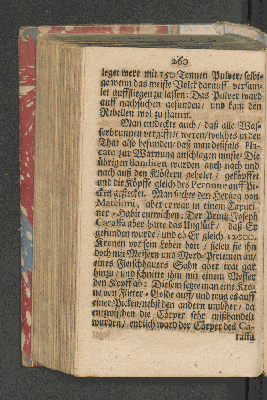 260
leget were mit 150 Tonnen Pulver / selbi-
ge wenn das meiste Volck darauff versam-
let auffsliegen zu lassen: Das Pulver ward
auff nachsuchen gefunden / und kam den
Rebellen wol zu statten.
Man entdeckte auch / daß alle Was-
serbrunnen vergifftet weren / welches in der
That also befunden / daß man desfals Pla-
cate zur Warnung anschlagen muste. Die
übrigen Banditen wurden auch nach und
nach auß den Klöstern geholet / geköpffet
und die Köpffe gleich des Peronne auff Pi-
cken gestecket. Man suchte den Hertzog von
Matelani / aber er war in einem Capuci-
ner-Habit entwichen. Der Printz Joseph
Caraffa aber hatte das Unglück / daß Er
gefunden wurde / und ob Er gleich 12000.
Kronen vor sein Leben bot / fielen sie ihn
doch mit Messern und Mord-Priemen an /
eines Fleischhauers Sohn aber trat gar
hinzu / und schneite ihm mit einem Messer
den Kopff ab: Diesem setzte man eine Kro-
ne von Flitter-Golde auff / und trug es auff
einer Picken nebst den andern umbher / da
entzwischen die Cörper sehr mißhandelt
wurden / endlich ward der Cörper des Ca-
raffa